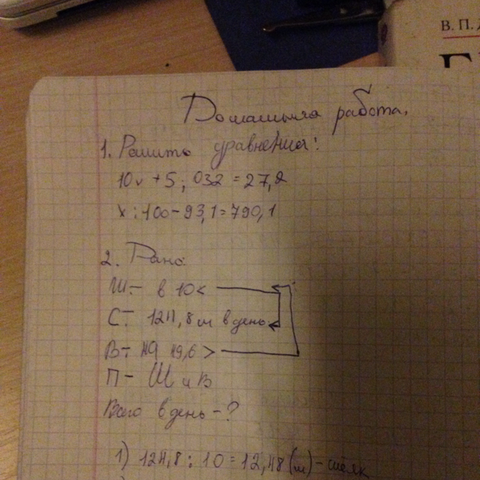 В. П.
Домашняя работа.
1. Решить уравнения:
10x + 5,032 = 27,2
x : 100 - 93,1 = 790,1
2. Дано
Ш - в 10 <
С - 124,8 м в день
В - на 19,6 >
П - Ш и В
Всего в день - ?
1) 124,8 : 10 = 12,48 (м) - шёлк